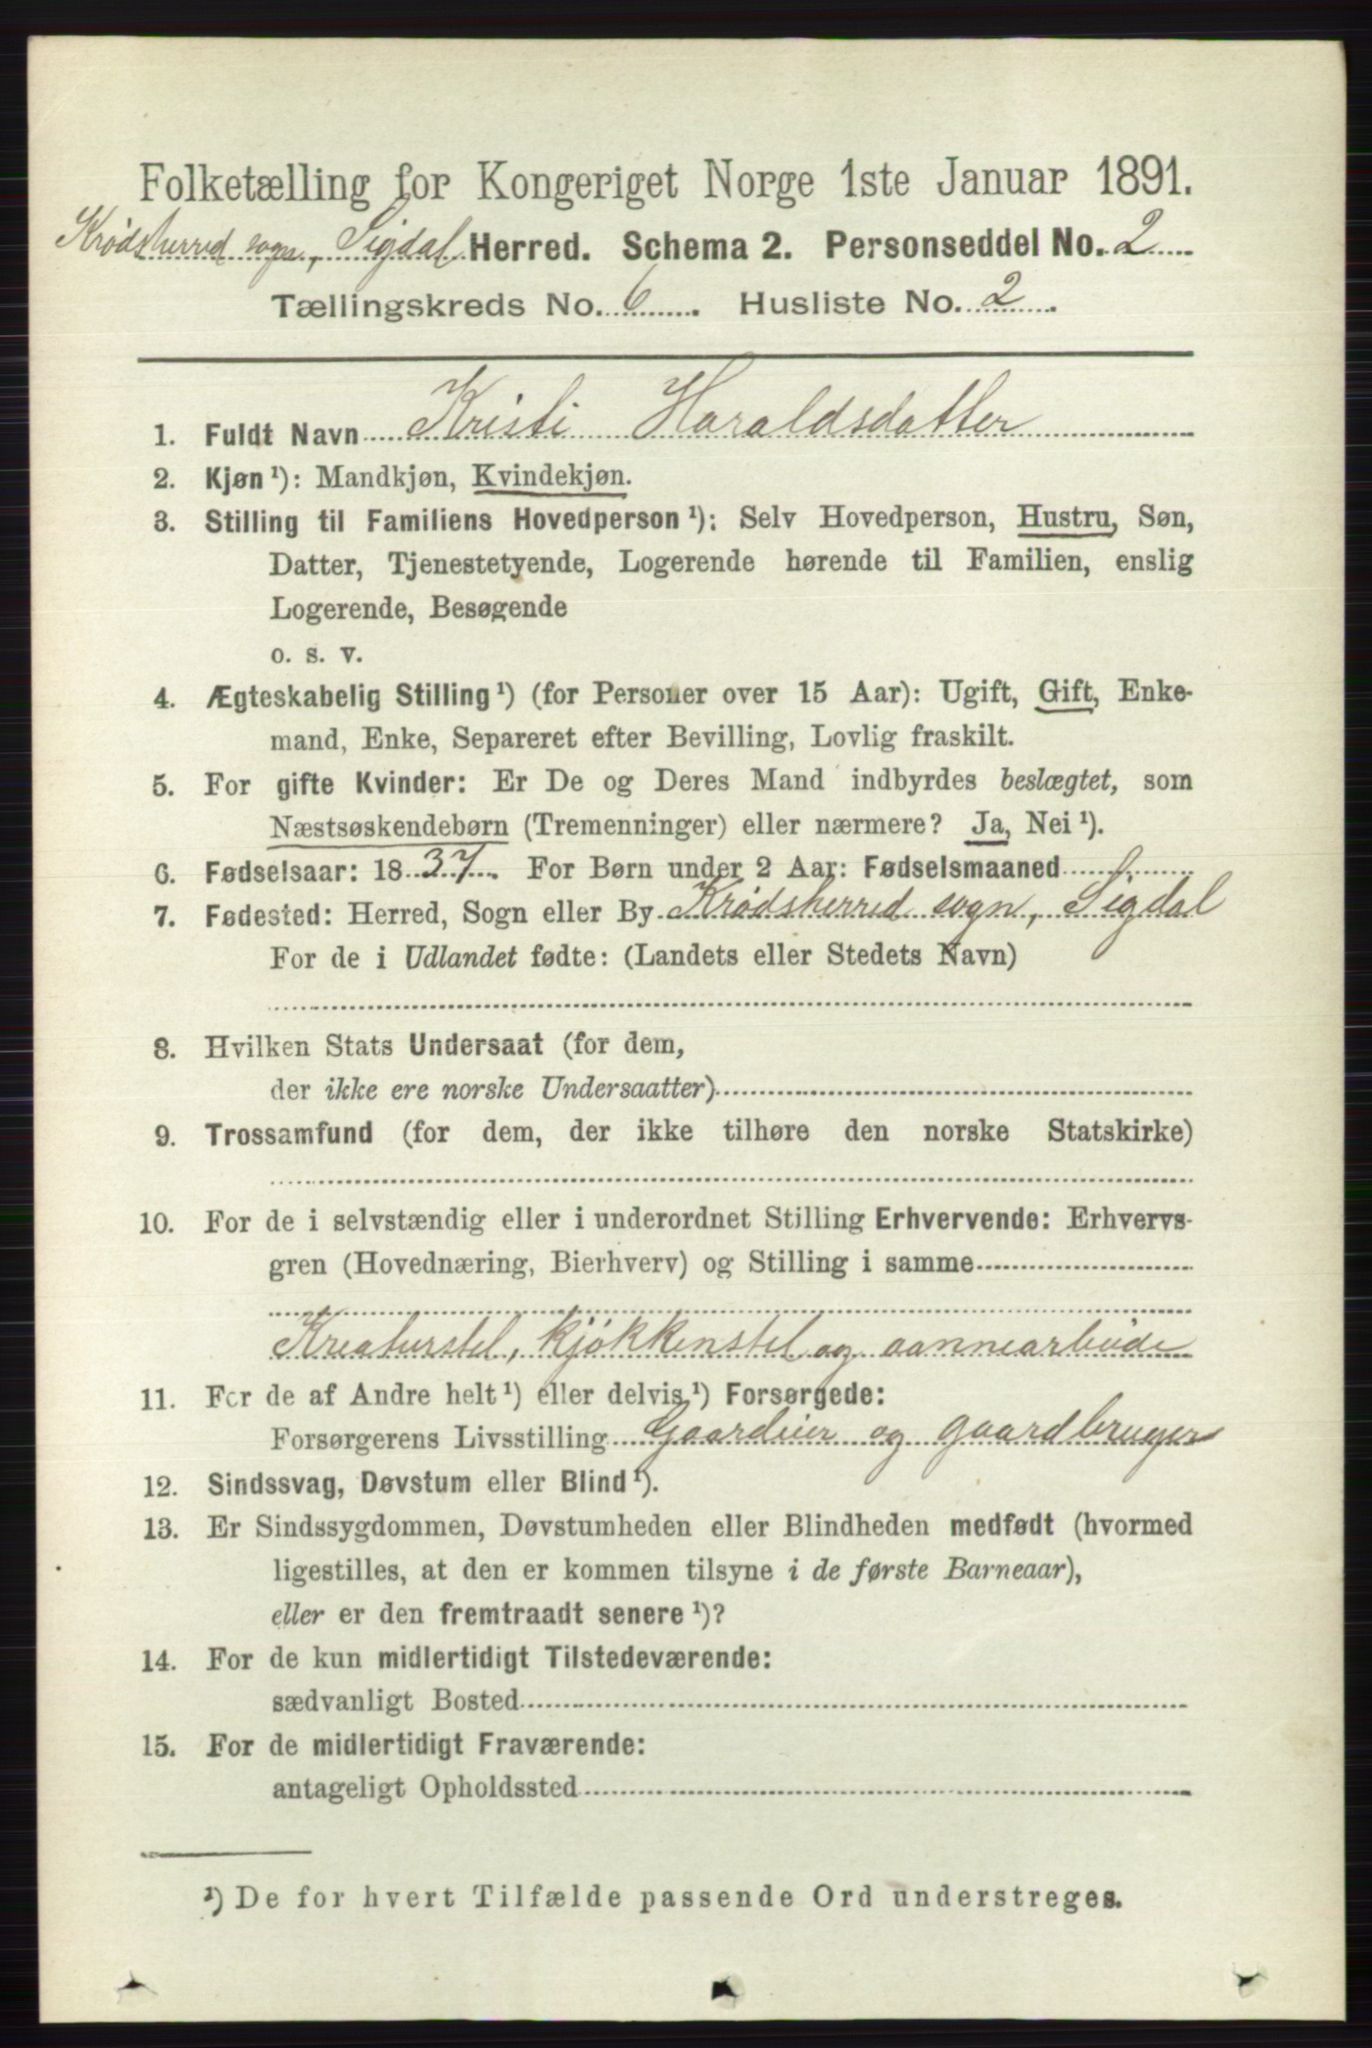 Folketælling for Kongeriget Norge 1ste Januar 1891.
Krødsherred sogn, Sigdal Herred. Schema 2. Personseddel No. 2
Tællingskreds No. 6. Husliste No. 2.
1. Fuldt Navn Kristi Haraldsdatter
2. Kjøn¹): Mandkjøn, Kvindekjøn.
3. Stilling til Familiens Hovedperson¹): Selv Hovedperson, Hustru, Søn,
Datter, Tjenestetyende, Logerende hørende til Familien, enslig
Logerende, Besøgende
o. s. v.
4. Ægteskabelig Stilling¹) (for Personer over 15 Aar): Ugift, Gift, Enke-
mand, Enke, Separeret efter Bevilling, Lovlig fraskilt.
5. For gifte Kvinder: Er De og Deres Mand indbyrdes beslægtet, som
Næstsøskendebørn (Tremenninger) eller nærmere? Ja, Nei¹).
6. Fødselsaar: 1837. For Børn under 2 Aar: Fødselsmaaned
7. Fødested: Herred, Sogn eller By Krødsherred sogn, Sigdal
For de i Udlandet fødte: (Landets eller Stedets Navn)
8. Hvilken Stats Undersaat (for dem,
der ikke ere norske Undersaatter)
9. Trossamfund (for dem, der ikke tilhøre den norske Statskirke)
10. For de i selvstændig eller i underordnet Stilling Erhvervende: Erhvervs-
gren (Hovednæring, Bierhverv) og Stilling i samme
Kreaturstel, kjøkkenstel og aannearbeide
11. For de af Andre helt¹) eller delvis¹) Forsørgede:
Forsørgerens Livsstilling Gaardeier og gaardbruger
12. Sindssvag, Døvstum eller Blind¹).
13. Er Sindssygdommen, Døvstumheden eller Blindheden medfødt (hvormed
ligestilles, at den er kommen tilsyne i de første Barneaar),
eller er den fremtraadt senere¹)?
14. For de kun midlertidigt Tilstedeværende:
sædvanligt Bosted
15. For de midlertidigt Fraværende:
antageligt Opholdssted
¹) De for hvert Tilfælde passende Ord understreges.